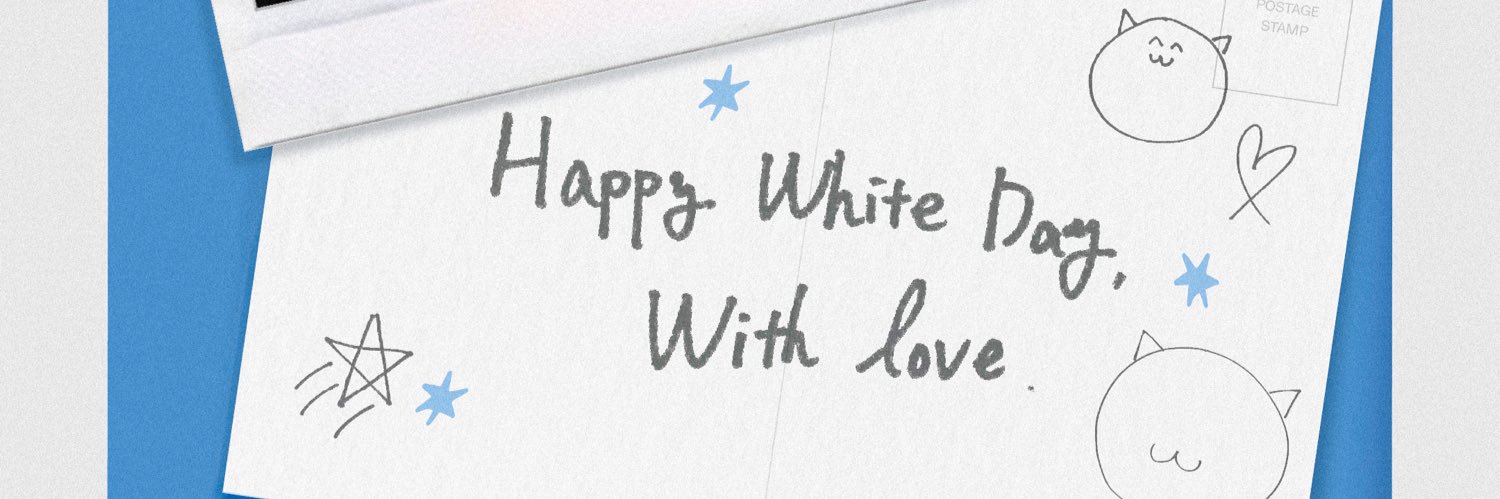 POSTAGE
STAMP
Happy White Day,
With love.